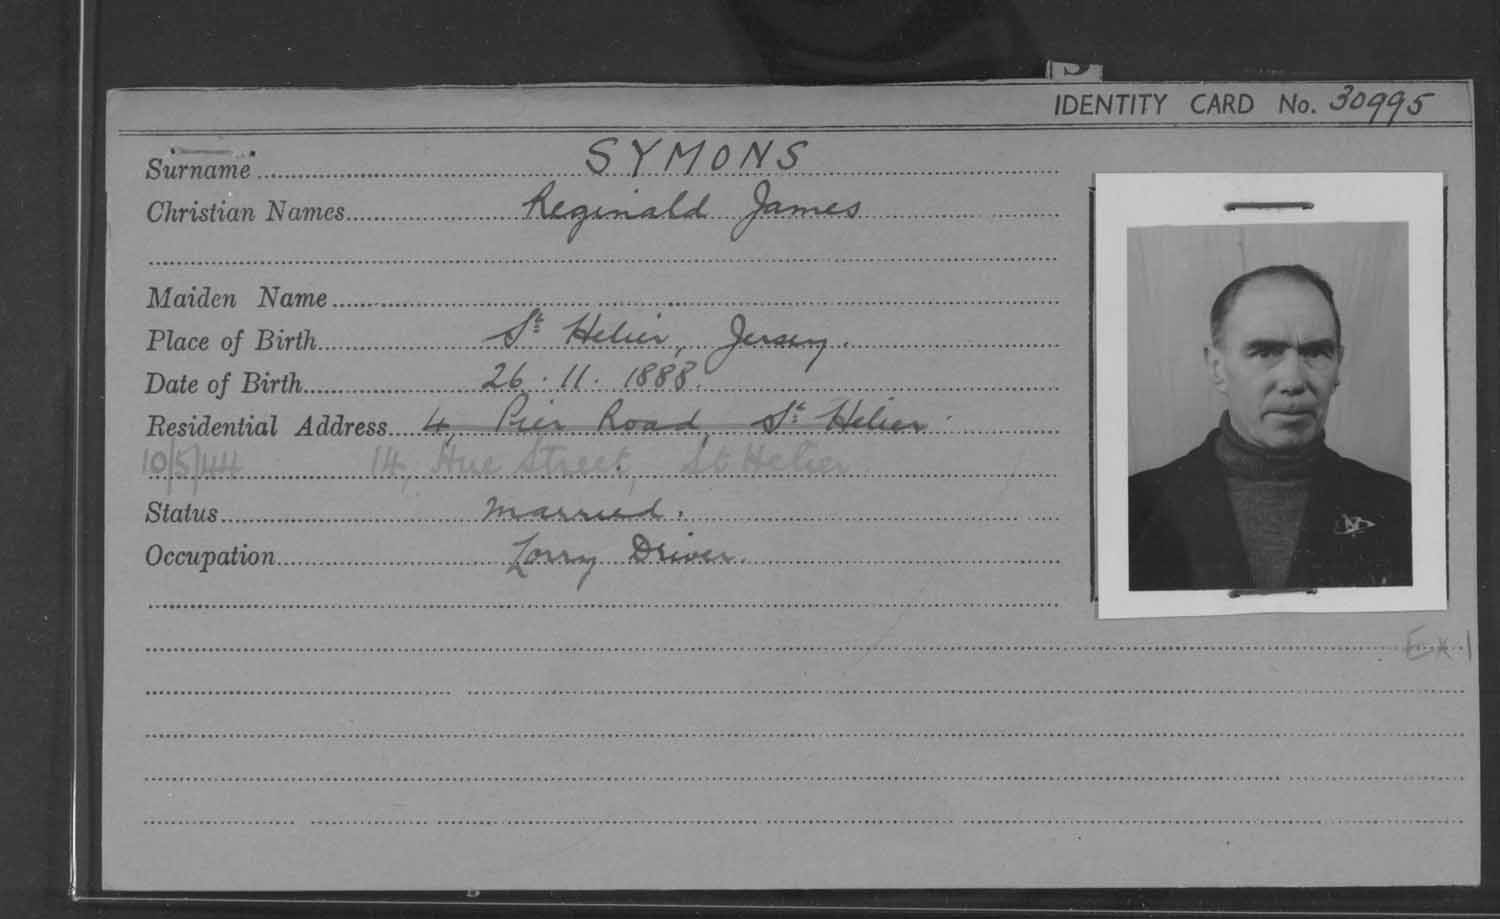 IDENTITY CARD No. 30995
Surname SYMONS
Christian Names Reginald James
Maiden Name
Place of Birth St Helier, Jersey.
Date of Birth 26.11.1888.
Residential Address 4, Pier Road, St Helier.
10/5/44 14, Hue Street, St Helier
Status Married.
Occupation Lorry Driver.